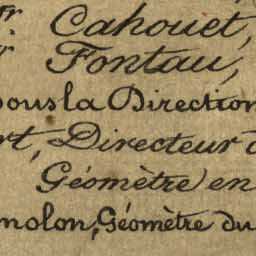 Mr. Cahouet,
Mr Fontau,
sous la Direction
rt, Directeur d
Géomètre en
nolon, Géomètre du